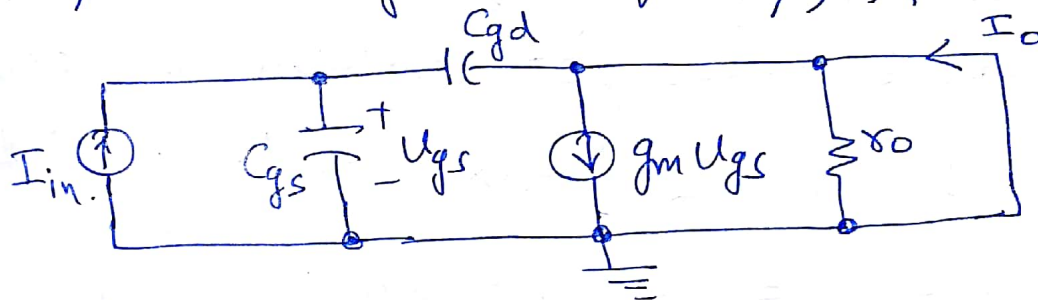 Cgd
Io
Iin.
Cgs
+
Ugs
-
gm Ugs
ro